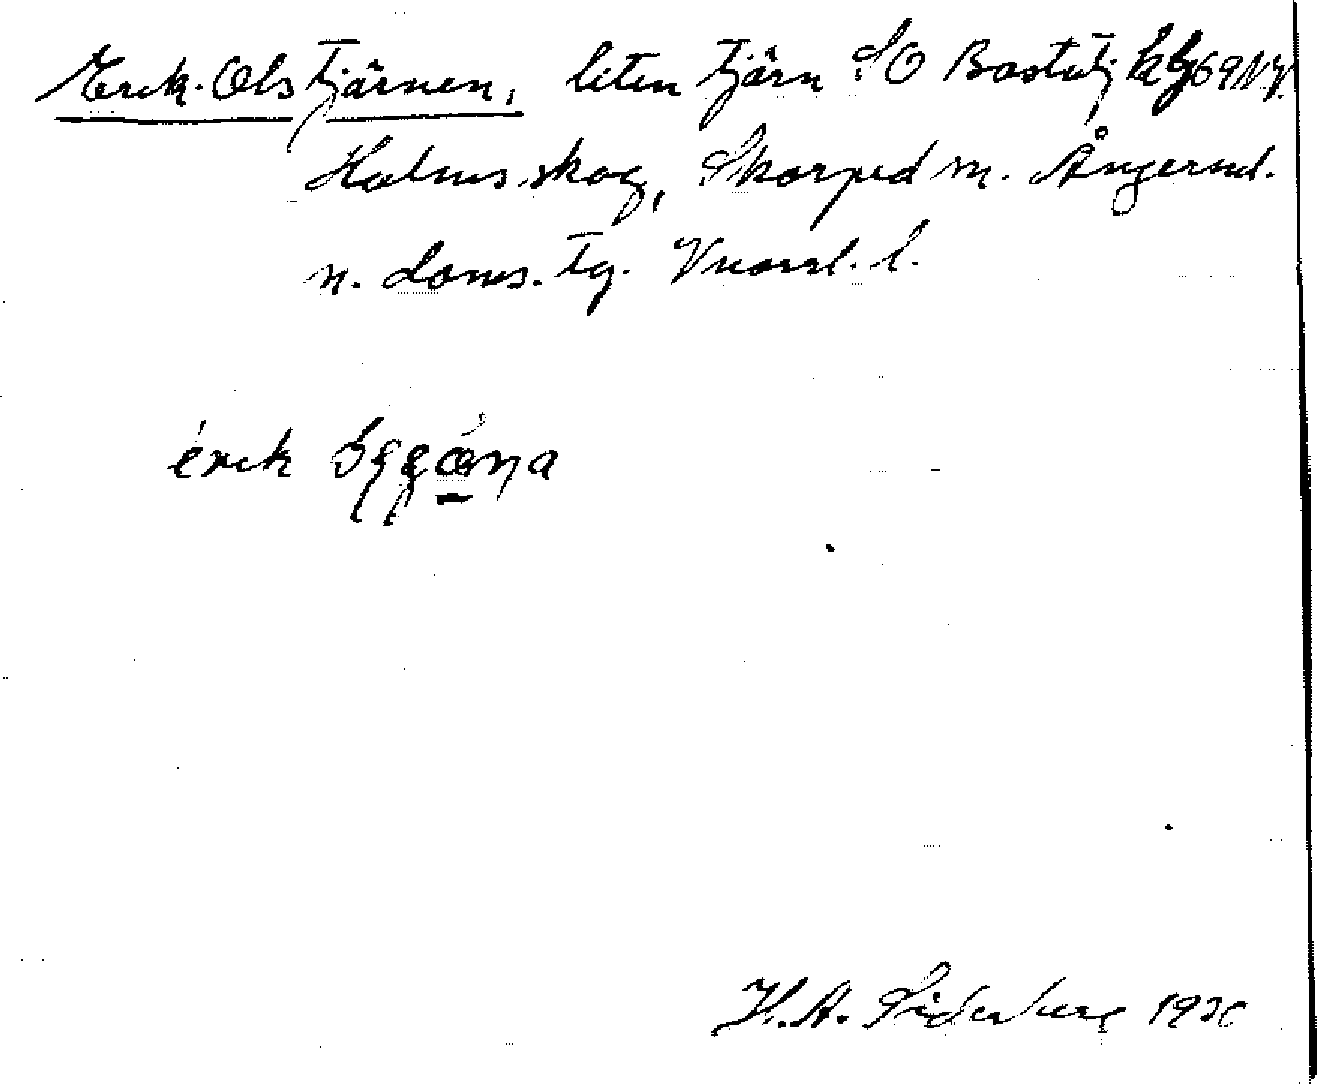 Erik-Olstjärnen, liten tjärn SO Bastutj kbl 69 N.V.
Holmsskog, Skorped sn. Ångerml.
n. doms. tg. Vnorrl. l.
érik
H.A. Söderberg 1920